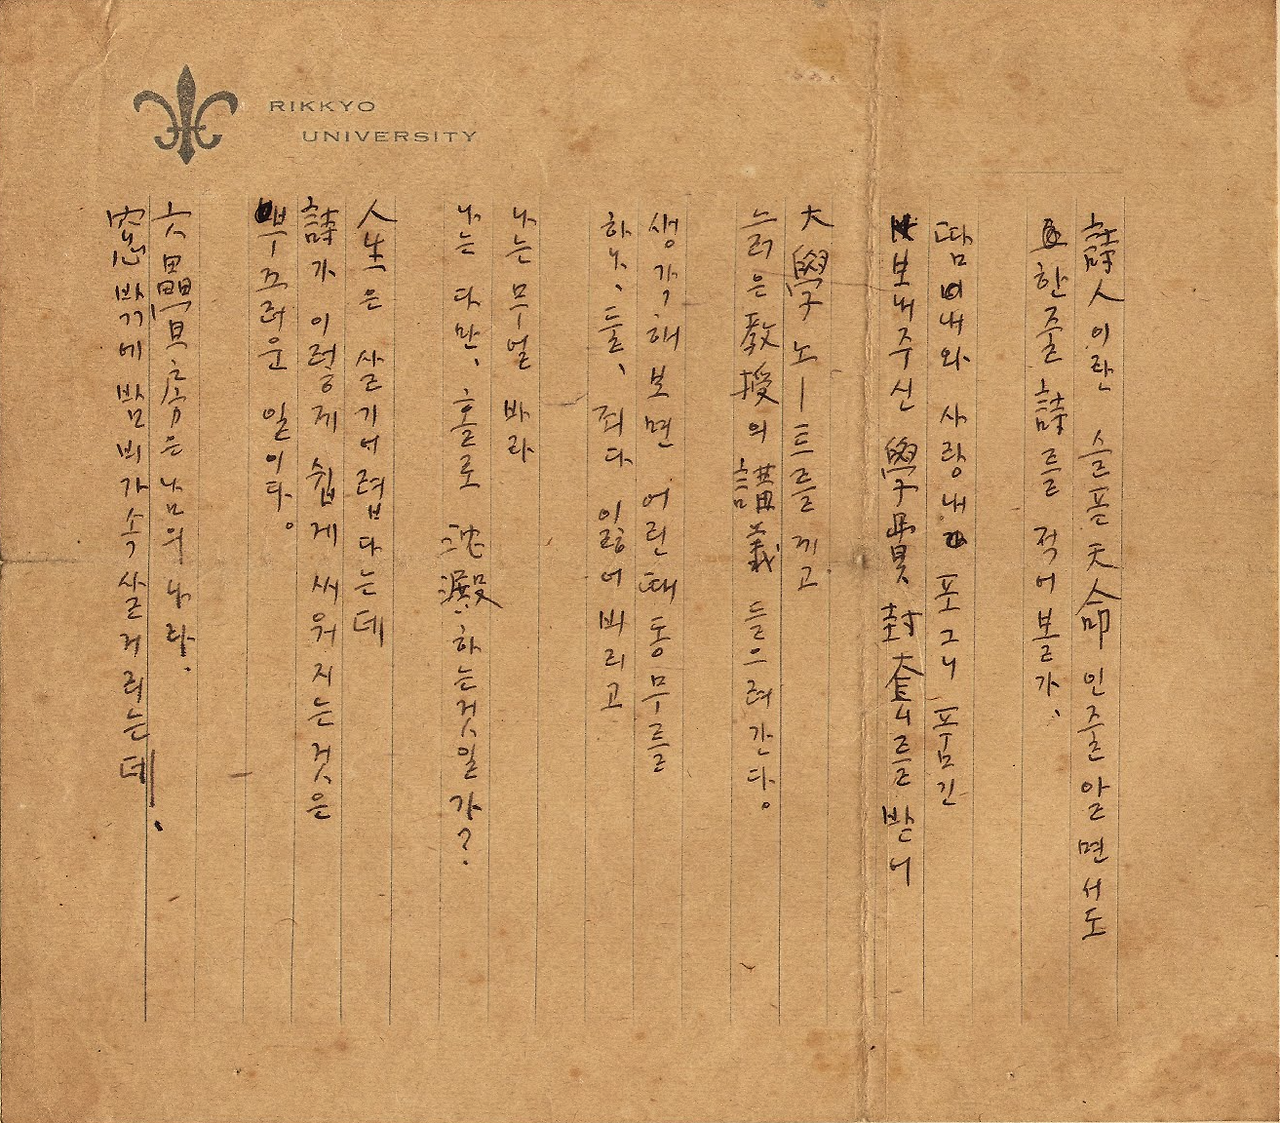 RIKKYO
UNIVERSITY
詩人이란 슬픈 天命인줄 알면서도
한줄 詩를 적어볼가、
땀내와 사랑내 포그니 품긴
보내주신 學費封套를 받어
大學노ー트를 끼고
늙은 敎授의 講義 들으려간다。
생각해보면 어린때동무를
하나、둘、죄다 잃어버리고
나는 무얼 바라
나는 다만、홀로 沈澱하는것일가?
人生은 살기어렵다는데
詩가 이렇게 쉽게 씨워지는것은
부끄러운 일이다。
六疊房은남의나라.
窓밖에밤비가속살거리는데、